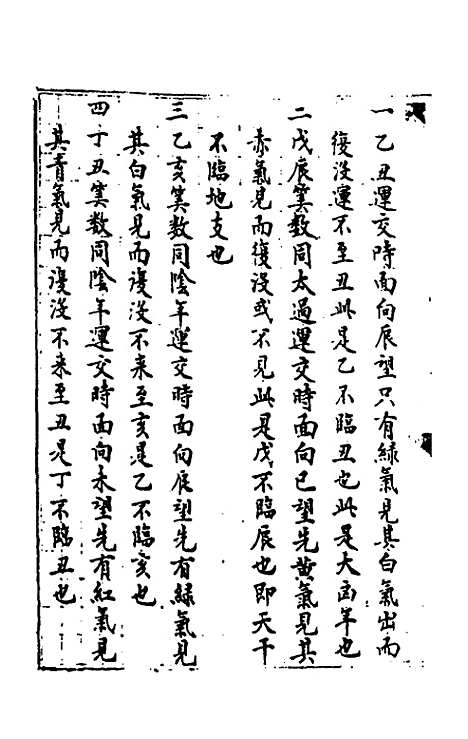 一乙丑運交時面向辰望只有綠氣見其白氣出而
復沒運不至丑此是乙不臨丑也此是大凶年也
二戊辰算數同太過運交時面向巳望先黃氣見其
赤氣見而復沒或不見此是戊不臨辰也即天干
不臨地支也
三乙亥算數同陰年運交時面向辰望先有綠氣見
其白氣見而復沒不來至亥是乙不臨亥也
四丁丑算數同陰年運交時面向未望先有紅氣見
其青氣見而復沒不來至丑是丁不臨丑也